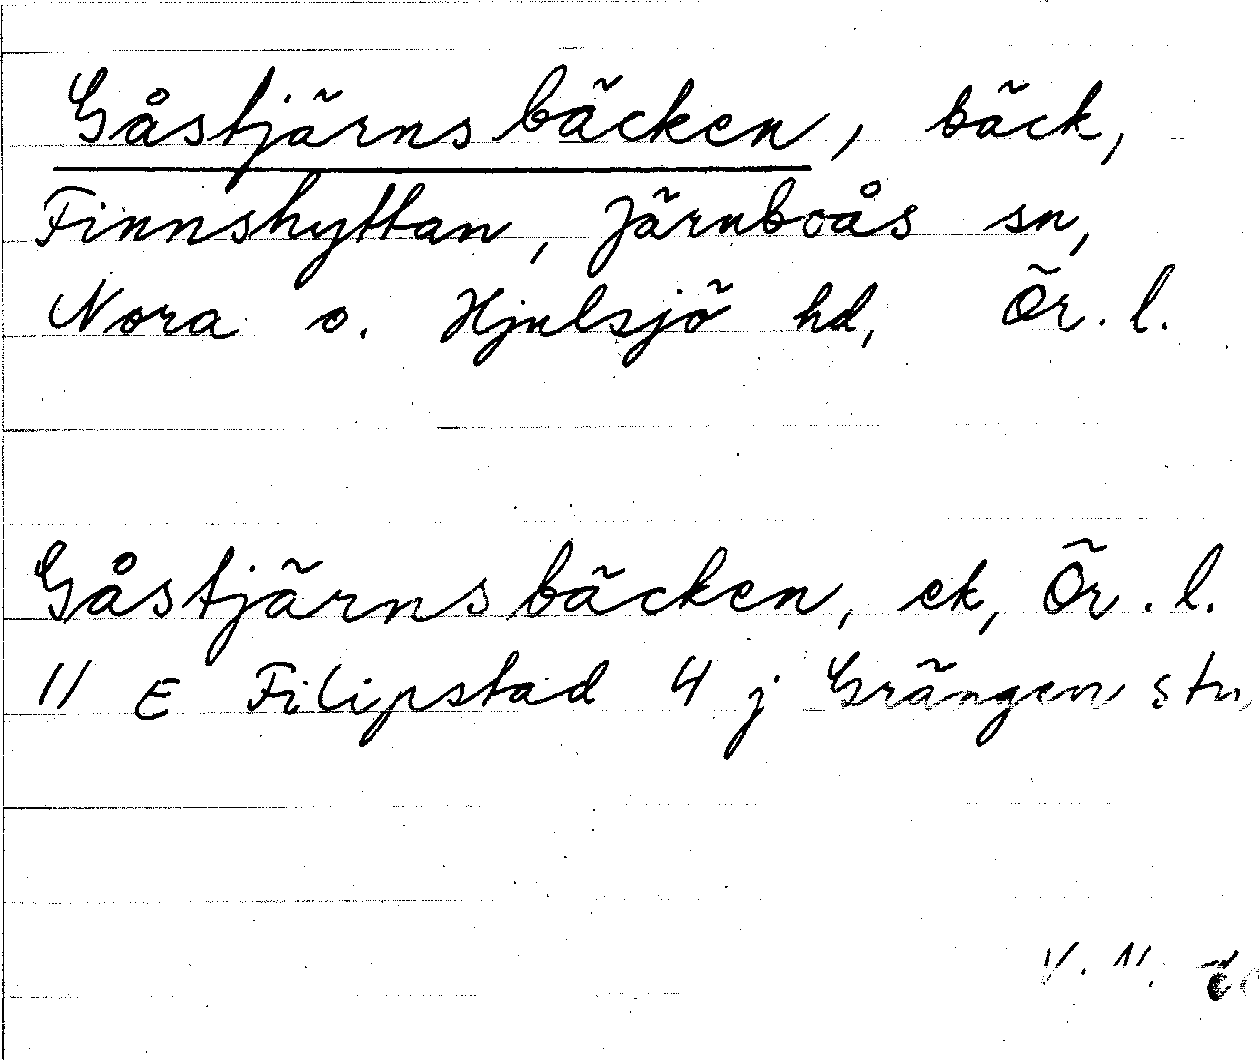 Gåstjärnsbäcken, bäck,
Finnshyttan, Järnboås sn,
Nora o. Hjulsjö hd, Ör. l.
Gåstjärnsbäcken, ek, Ör. l.
11 E Filipstad 4 j Grängen stn,
V. N.